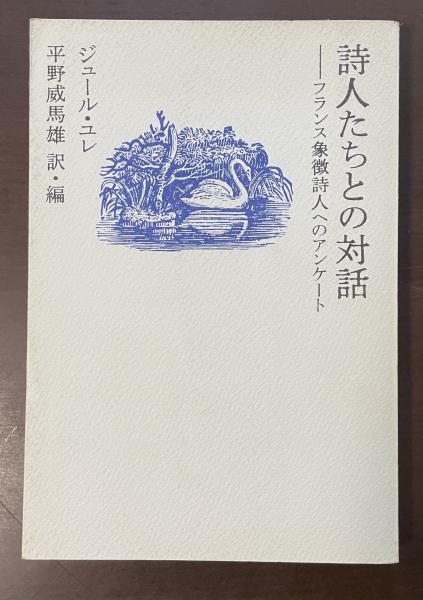 詩人たちとの対話
──フランス象徴詩人へのアンケート
ジュール・ユレ
平野威馬雄 訳・編